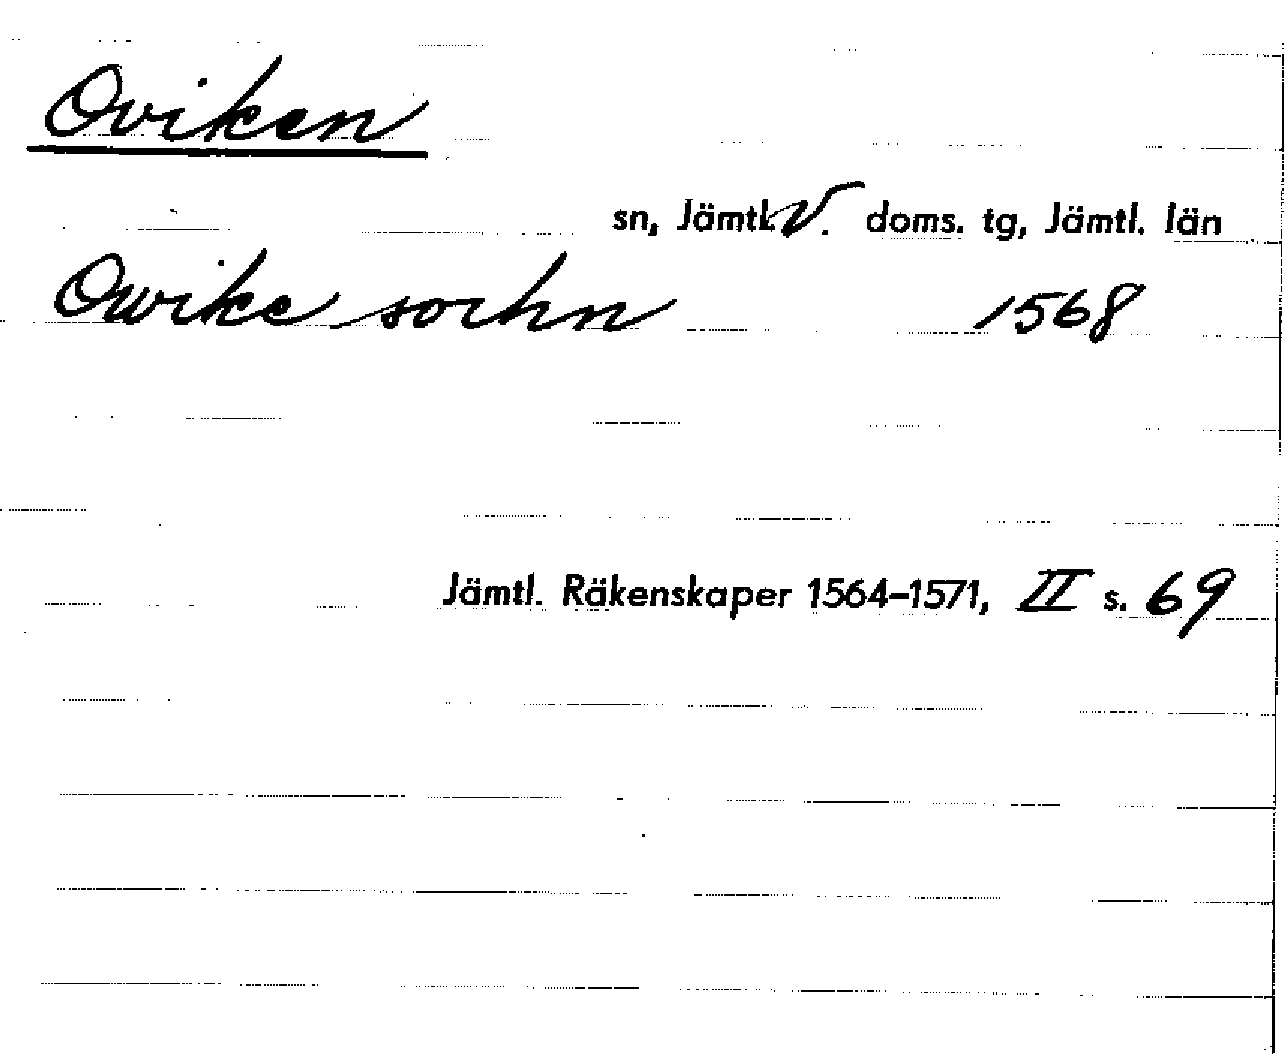 Oviken
sn, Jämtl. V. doms. tg, Jämtl. län
Owike sochn 1568
Jämtl. Räkenskaper 1564–1571, II s. 69